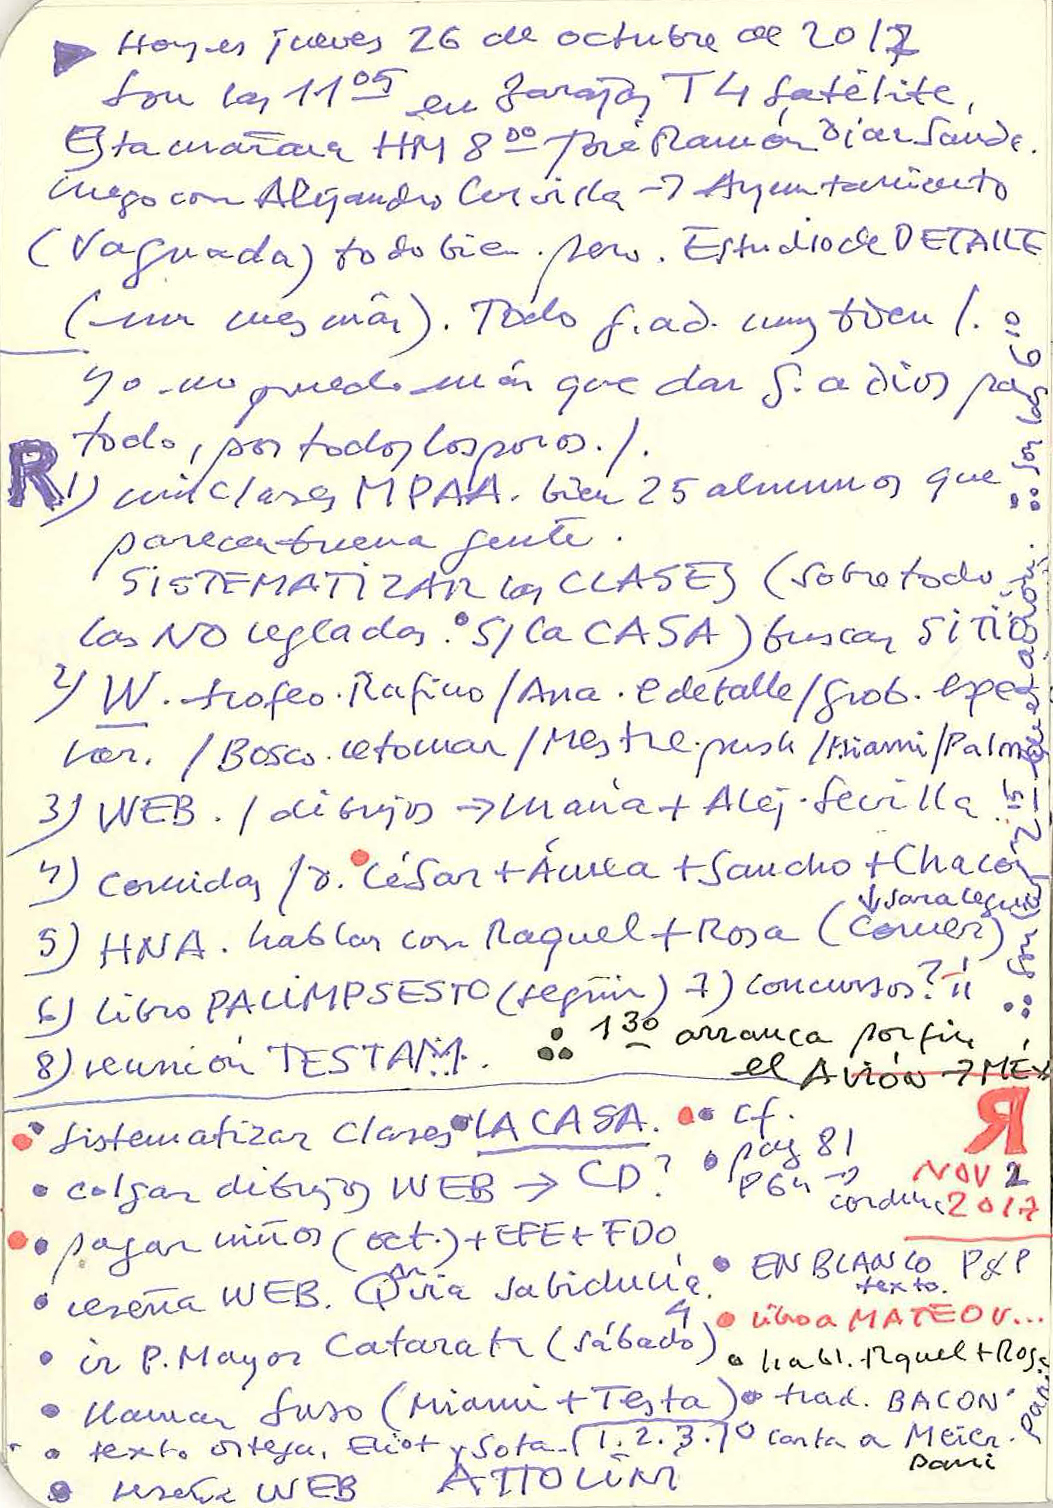 Hoy es jueves 26 de octubre de 2017
Son las 11 05 en Barajas T4 Satélite,
Esta mañana HM 8 00 José Ramón
luego con Alejandro Cervilla → Ayuntamiento
(Vaguada) todo bien. pero. Estudio de DETALLE
(un mes más). Todo g. a d. muy bien /.
Yo no puedo más que dar g. a dios por
todo, por todos los poros. /.
R
1) mis clases MPAA. bien 25 alumnos que
parecen buena gente.
SISTEMATIZAR las CLASES (sobre todo
las NO regladas. S/ la CASA) buscar SITIO
2) W. trofeo. Rafino / Ana. e detalle /
/ Bosco. retomar / Mestre. push / Miami / Palm
3) WEB. / dibujos → María + Alej. Sevilla
4) comidas / D. César + + Sancho + Chacón
5) HNA. hablar con Raquel + Rosa (comer)
6) libro PALIMPSESTO (seguir) 7) concursos? !!
8) reunión TESTAM.
1 30 arranca por fin
el AVIÓN → MÉX
son las 6 10
Sistematizar Clases LA CASA. cf.
pág 81
R
NOV 2
2017
colgar dibujos WEB → CD?
pagar niños (oct.) + EFE + FDO
reseña WEB. sabiduría.
EN BLANCO P&P
texto.
libro a MATEO V...
ir P. Mayor Catarata (sábado 4)
habl. Rquel + Rosa
llamar Suso (Miami + Testa)
trad. BACON
texto Ortega, Eliot y Sota. 1. 2. 3.
carta a Meier.
reseña WEB ATTOLINI